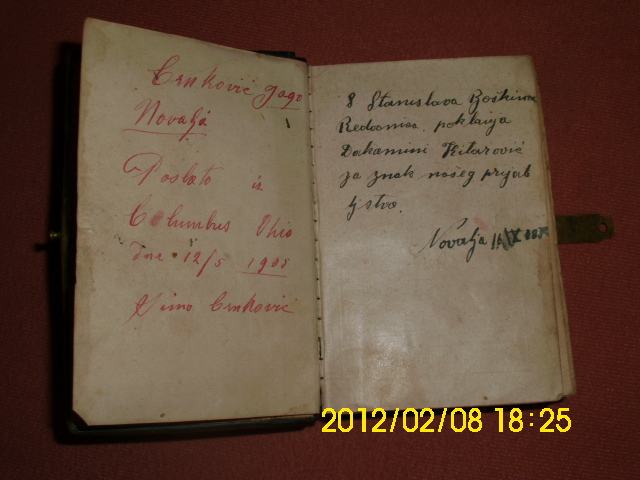 Crnković gago
Novalja
Poslato iz
Columbus Ohio
dne 12/5 1908
Simo Crnković
8 Stanislava Boškinac
poklanja
Dakamini Kitarović
za znak našeg prijat
ljstva.
Novalja
2012/02/08 18:25